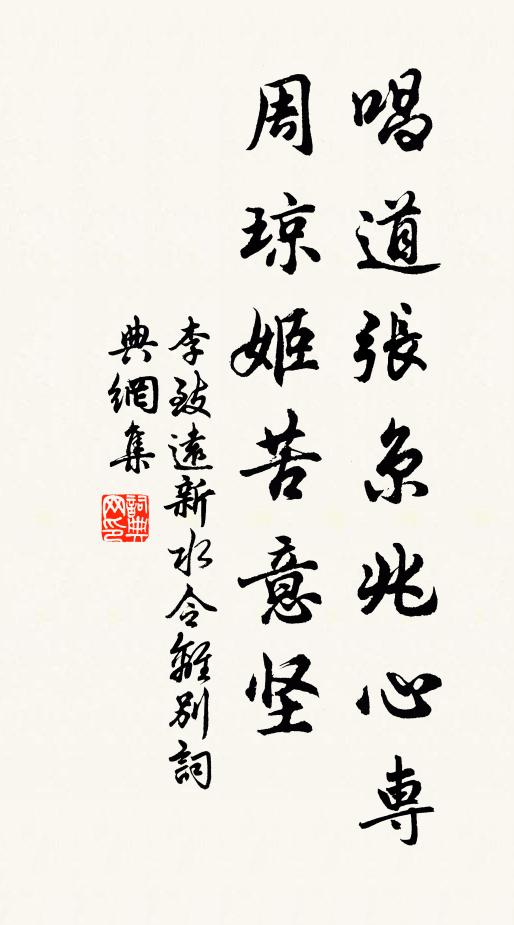 唱道張京兆心専
周琼姬苦意坚
李致遠新水令離別詞
典網集
詞典网印